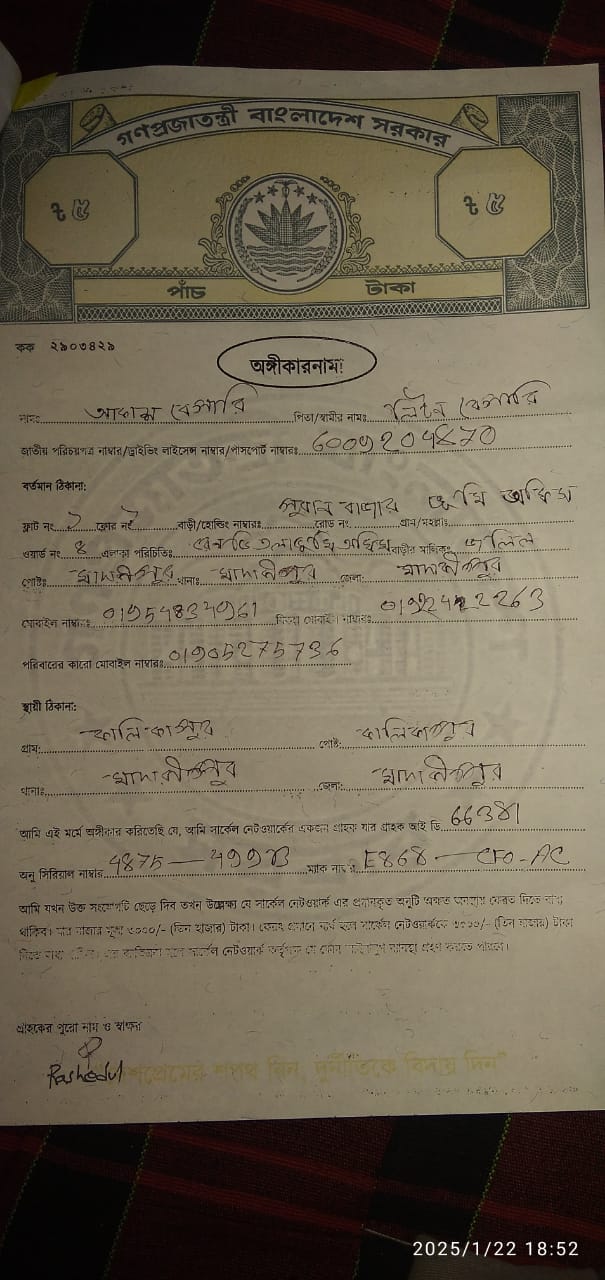 গণপ্রজাতন্ত্রী বাংলাদেশ সরকার
৳ ৫ ৳ ৫
পাঁচ টাকা
কক ২৯০৩৪২৯
অঙ্গীকারনামা
নামঃ আকাশ বেপারি পিতা/স্বামীর নামঃ লিটন বেপারি
জাতীয় পরিচয়পত্র নাম্বার/ড্রাইভিং লাইসেন্স নাম্বার/পাসপোর্ট নাম্বারঃ
বর্তমান ঠিকানা:
ফ্লাট নং ফ্লোর নং বাড়ী/হোল্ডিং নাম্বারঃ পুরান বাজার রোড নং গ্রাম/মহল্লাঃ ভূমি অফিস
ওয়ার্ড নং ৪ এলাকা পরিচিতিঃ বাড়ীর মালিকঃ জলিল
পোষ্টঃ মাদারীপুর থানাঃ মাদারীপুর জেলা: মাদারীপুর
মোবাইল নাম্বারঃ নাম্বারঃ
পরিবারের কারো মোবাইল নাম্বারঃ
স্থায়ী ঠিকানা:
গ্রাম: কালিকাপুর পোষ্ট: কালিকাপুর
থানাঃ মাদারীপুর জেলা: মাদারীপুর
আমি এই মর্মে অঙ্গীকার করিতেছি যে, আমি সার্কেল নেটওয়ার্কের একজন গ্রাহক যার গ্রাহক আই ডি 66381
অনু সিরিয়াল নাম্বার 4875 — ম্যাক E868 — CFO-AC
আমি যখন উক্ত সংযোগটি ছেড়ে দিব তখন উল্লেক্ষ্য যে সার্কেল নেটওয়ার্ক এর প্রদানকৃত অনুটি অক্ষত অবস্থায় ফেরত দিতে বাধ্য
থাকিব। যার বাজার মূল্য ৩০০০/- (তিন হাজার) টাকা। ফেরৎ প্রদানে ব্যর্থ হলে সার্কেল নেটওয়ার্ককে ৩০০০/- (তিন হাজার) টাকা
দিতে বাধ্য সার্কেল নেটওয়ার্ক কর্তৃপক্ষ যে কোন ব্যবস্থা গ্রহণ করতে পারবে।
গ্রাহকের পুরো নাম ও স্বাক্ষর
Rashedul
"দেশপ্রেমের শপথ নিন, দুর্নীতিকে বিদায় দিন"
2025/1/22 18:52